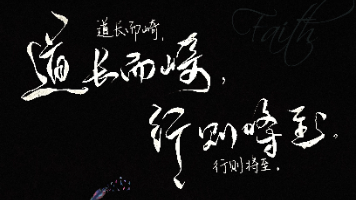 Faith
道长而崎,
道长而崎,
行则峰至。
行则将至。